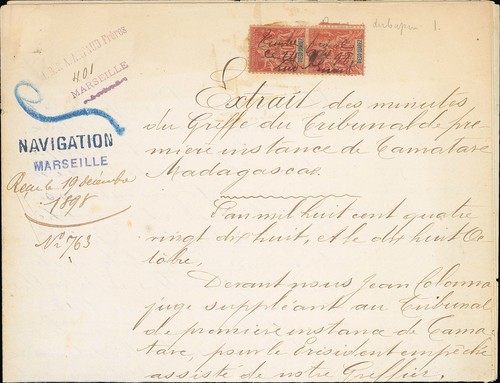 401
MARSEILLE
NAVIGATION
MARSEILLE
Reçu le 19 décembre
1898
No 763
Extrait des minutes
du Greffe du Tribunal de pre-
mière instance de Tamatave
Madagascar
L'an mil huit cent quatre
vingt dix huit, et le dix huit Oc
tobre,
Devant nous Jean Colonna
juge suppléant au Tribunal
de première instance de Tama-
tave, pour le Président empêché
assisté de notre Greffier